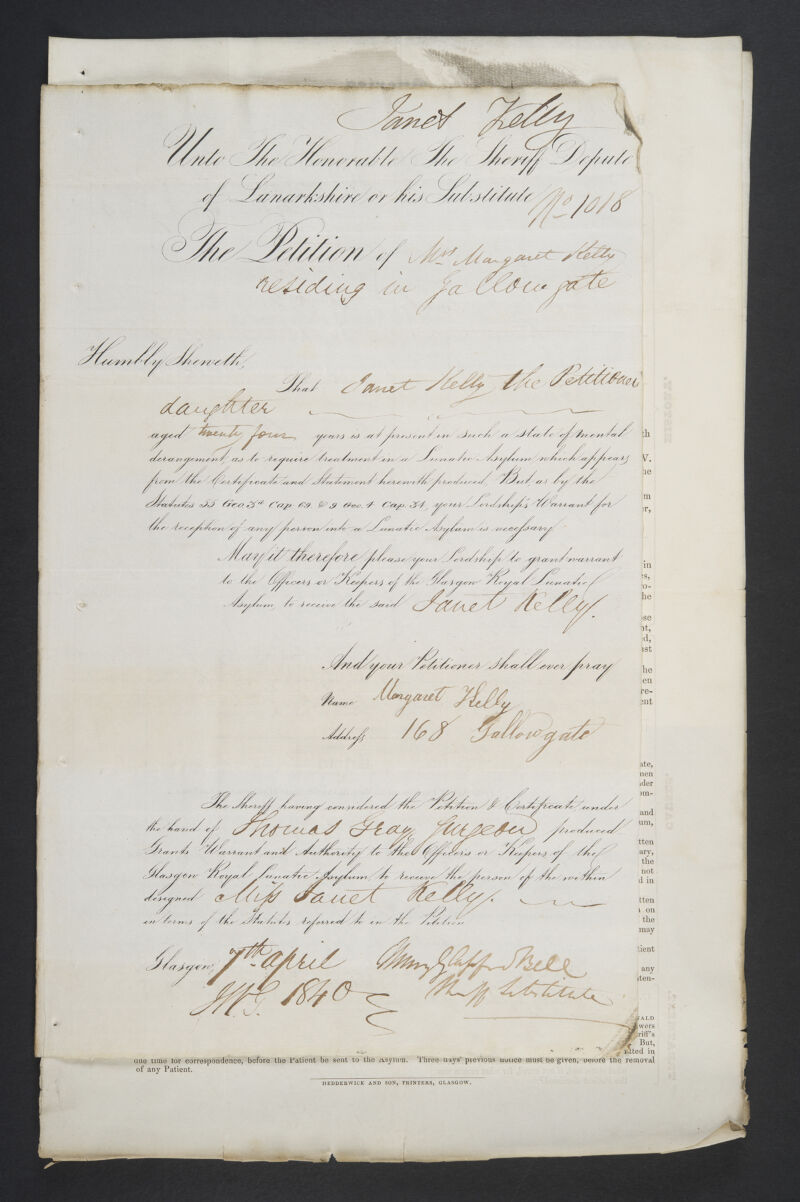 Janet Kelly
Unto The Honorable The Sheriff Depute
of Lanarkshire or his Substitute
No 1018
The Petition of Mrs Margaret Kelly
residing in Gallowgate
Humbly Sheweth,
That Janet Kelly the Petitioner
daughter
aged twenty four years is at present in such a state of mental
derangement, as to require treatment in a Lunatic Asylum, which appears
from the Certificate and Statement herewith produced, But, as by the
Statutes 55 Geo. 3d Cap. 69. & 9 Geo. 4 Cap. 34, your Lordship's Warrant for
the reception of any person into a Lunatic Asylum is necessary
May it therefore please your Lordship to grant warrant
to the Officers or Keepers of the Glasgow Royal Lunatic
Asylum, to receive the said Janet Kelly.
And your Petitioner shall ever pray
Name Margaret Kelly
Address 168 Gallowgate
The Sheriff having considered the Petition & Certificate under
the hand of Thomas Gray Surgeon produced
Grants Warrant and Authority to the Officers or Keepers of the
Glasgow Royal Lunatic Asylum to receive the person of the within
designed Miss Janet Kelly.
in terms of the Statutes referred to in the Petition
Glasgow, 7th April
1840
Henry Glassford Bell
Sheriff Substitute
one time for correspondence, before the Patient be sent to the Asylum. Three days' previous notice must be given, before the removal
of any Patient.
HEDDERWICK AND SON, PRINTERS, GLASGOW.